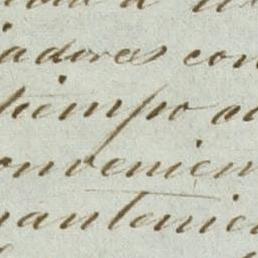 iadores con
tiempo a
onvenien
mantenie